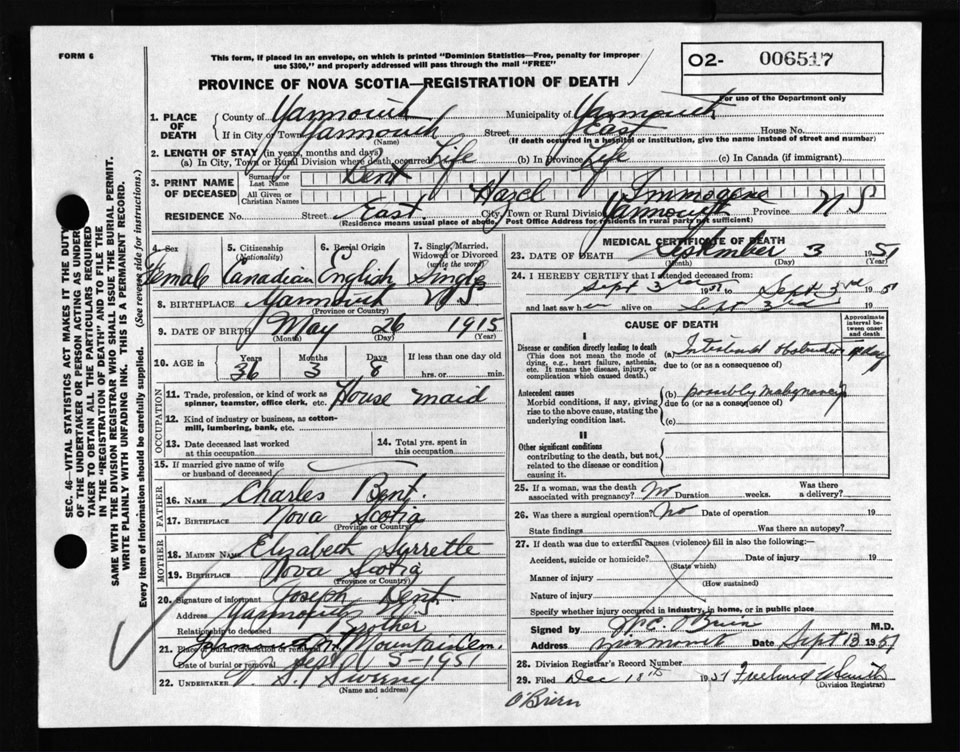 FORM 6
This form, if placed in an envelope, on which is printed "Dominion Statistics—Free, penalty for improper
use $300," and properly addressed will pass through the mail "FREE"
PROVINCE OF NOVA SCOTIA—REGISTRATION OF DEATH
O2- 006517
For use of the Department only
SEC. 46—VITAL STATISTICS ACT MAKES IT THE DUTY
OF THE UNDERTAKER OR PERSON ACTING AS UNDER-
TAKER TO OBTAIN ALL THE PARTICULARS REQUIRED
IN THE "REGISTRATION OF DEATH" AND TO FILE THE
SAME WITH THE DIVISION REGISTRAR WHO SHALL ISSUE THE BURIAL PERMIT.
WRITE PLAINLY WITH UNFADING INK. THIS IS A PERMANENT RECORD.
Every item of Information should be carefully supplied. (See reverse side for instructions.)
1. PLACE OF DEATH
County of Yarmouth Municipality of Yarmouth
If in City or Town Yarmouth Street East House No.
(Name) (If death occurred in a hospital or institution, give the name instead of street and number)
2. LENGTH OF STAY (in years, months and days)
(a) In City, Town or Rural Division where death occurred Life (b) In Province Life (c) In Canada (if immigrant)
3. PRINT NAME OF DECEASED
Surname or Last Name Bent
All Given or Christian Names Hazel Immogene
RESIDENCE House No. Street East City, Town or Rural Division Yarmouth Province N S
(Residence means usual place of abode. Post Office Address for residents in rural parts not sufficient)
4. Sex 5. Citizenship (Nationality) 6. Racial Origin 7. Single, Married, Widowed or Divorced (write the word)
Female Canadian English Single
8. BIRTHPLACE Yarmouth N S
(Province or Country)
9. DATE OF BIRTH May 26 1915
(Month) (Day) (Year)
10. AGE in Years Months Days If less than one day old
36 3 8 hrs. or min.
OCCUPATION
11. Trade, profession, or kind of work as spinner, teamster, office clerk, etc. House maid
12. Kind of industry or business, as cotton-mill, lumbering, bank, etc.
13. Date deceased last worked at this occupation
14. Total yrs. spent in this occupation
15. If married give name of wife or husband of deceased
FATHER
16. NAME Charles Bent
17. BIRTHPLACE Nova Scotia
(Province or Country)
MOTHER
18. MAIDEN NAME Elizabeth Surrette
19. BIRTHPLACE Nova Scotia
(Province or Country)
20. Signature of informant Joseph Bent
Address Yarmouth N.S.
Relationship to deceased Brother
21. Place of burial or removal Mountain Cem.
Date of burial or removal Sept 5-1951
22. UNDERTAKER V. S. Sweeny
(Name and address)
MEDICAL CERTIFICATE OF DEATH
23. DATE OF DEATH September 3 1951
(Month) (Day) (Year)
24. I HEREBY CERTIFY that I attended deceased from:
Sept 3rd 1951 to Sept 3rd 1951
and last saw her alive on Sept 3rd
CAUSE OF DEATH
Approximate interval between onset and death
I
Disease or condition directly leading to death
(This does not mean the mode of dying, e.g., heart failure, asthenia, etc. It means the disease, injury, or complication which caused death.)
(a) Intestinal obstruction day
due to (or as a consequence of)
Antecedent causes
Morbid conditions, if any, giving rise to the above cause, stating the underlying condition last.
(b) possibly Malignancy
due to (or as a consequence of)
(c)
II
Other significant conditions
contributing to the death, but not related to the disease or condition causing it.
25. If a woman, was the death associated with pregnancy? No Duration weeks. Was there a delivery?
26. Was there a surgical operation? No Date of operation 19
State findings Was there an autopsy?
27. If death was due to external causes (violence) fill in also the following:—
Accident, suicide or homicide? Date of injury 19
(State which)
Manner of injury
(How sustained)
Nature of injury
Specify whether injury occurred in industry, in home, or in public place
Signed by O'Brien M.D.
Address Yarmouth Date Sept 13 1951
28. Division Registrar's Record Number
29. Filed Dec 18th 1951
(Division Registrar)
O'Brien